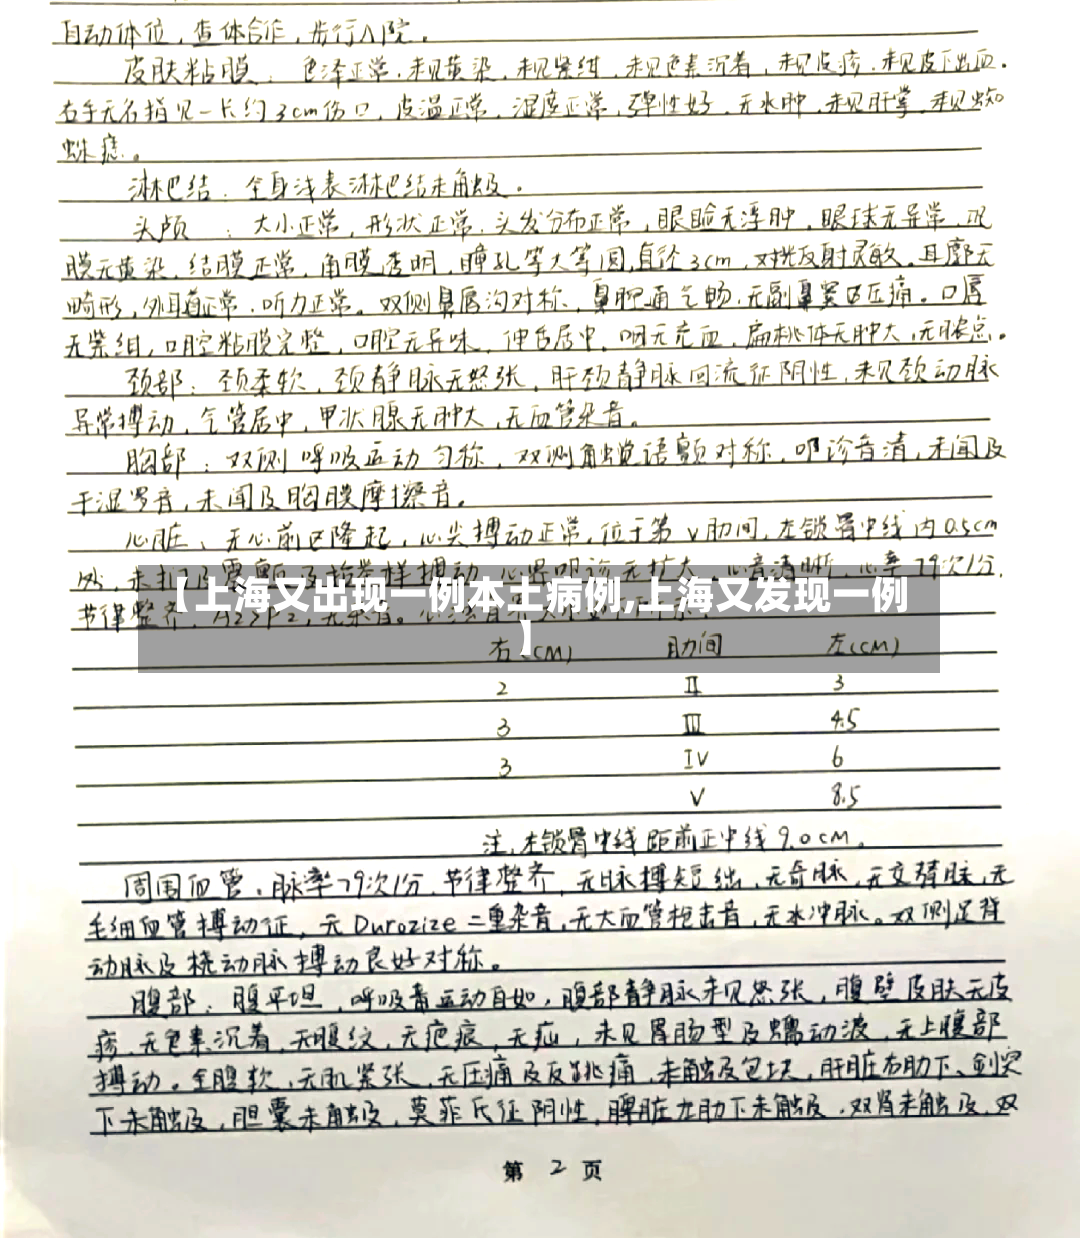 自动体位，查体合作，步行入院。
皮肤粘膜：色泽正常，未见黄染，未见紫绀，未见色素沉着，未见皮疹，未见皮下出血。
右手无名指见一长约3cm伤口，皮温正常，湿度正常，弹性好，无水肿，未见肝掌，未见蜘
蛛痣。
淋巴结：全身浅表淋巴结未触及。
头颅：大小正常，形状正常，头发分布正常，眼睑无浮肿，眼球无异常，巩
膜无黄染，结膜正常，角膜透明，瞳孔等大等圆，直径3cm，对光反射灵敏。耳廓无
畸形，外耳道正常，听力正常。双侧鼻唇沟对称，鼻腔通气畅，无副鼻窦区压痛。口唇
无紫绀，口腔粘膜完整，口腔无异味，伸舌居中，咽无充血，扁桃体无肿大，无脓点。
颈部：颈柔软，颈静脉无怒张，肝颈静脉回流征阴性，未见颈动脉
异常搏动，气管居中，甲状腺无肿大，无血管杂音。
胸部：双侧呼吸运动匀称，双侧触觉语颤对称，叩诊音清，未闻及
干湿罗音，未闻及胸膜摩擦音。
心脏：无心前区隆起，心尖搏动正常，位于第V肋间，左锁骨中线内0.5cm
处，未扪及震颤及抬举样搏动，心界叩诊无扩大，心音清晰，心率79次/分，
节律整齐，A2>P2，无杂音。
【上海又出现一例本土病例,上海又发现一例
】
右(CM) 肋间 左(CM)
2 II 3
3 III 4.5
3 IV 6
V 8.5
注：左锁骨中线距前正中线9.0cM。
周围血管：脉率79次/分，节律整齐，无脉搏短绌，无奇脉，无交替脉，无
毛细血管搏动征，无Durozize二重杂音，无大血管枪击音，无水冲脉。双侧足背
动脉及桡动脉搏动良好对称。
腹部：腹平坦，呼吸音运动自如，腹部静脉未见怒张，腹壁皮肤无皮
疹，无色素沉着，无腹纹，无疤痕，无疝，未见胃肠型及蠕动波，无上腹部
搏动。全腹软，无肌紧张，无压痛及反跳痛，未触及包块，肝脏右肋下、剑突
下未触及，胆囊未触及，莫菲氏征阴性，脾脏左肋下未触及，双肾未触及，双
第 2 页